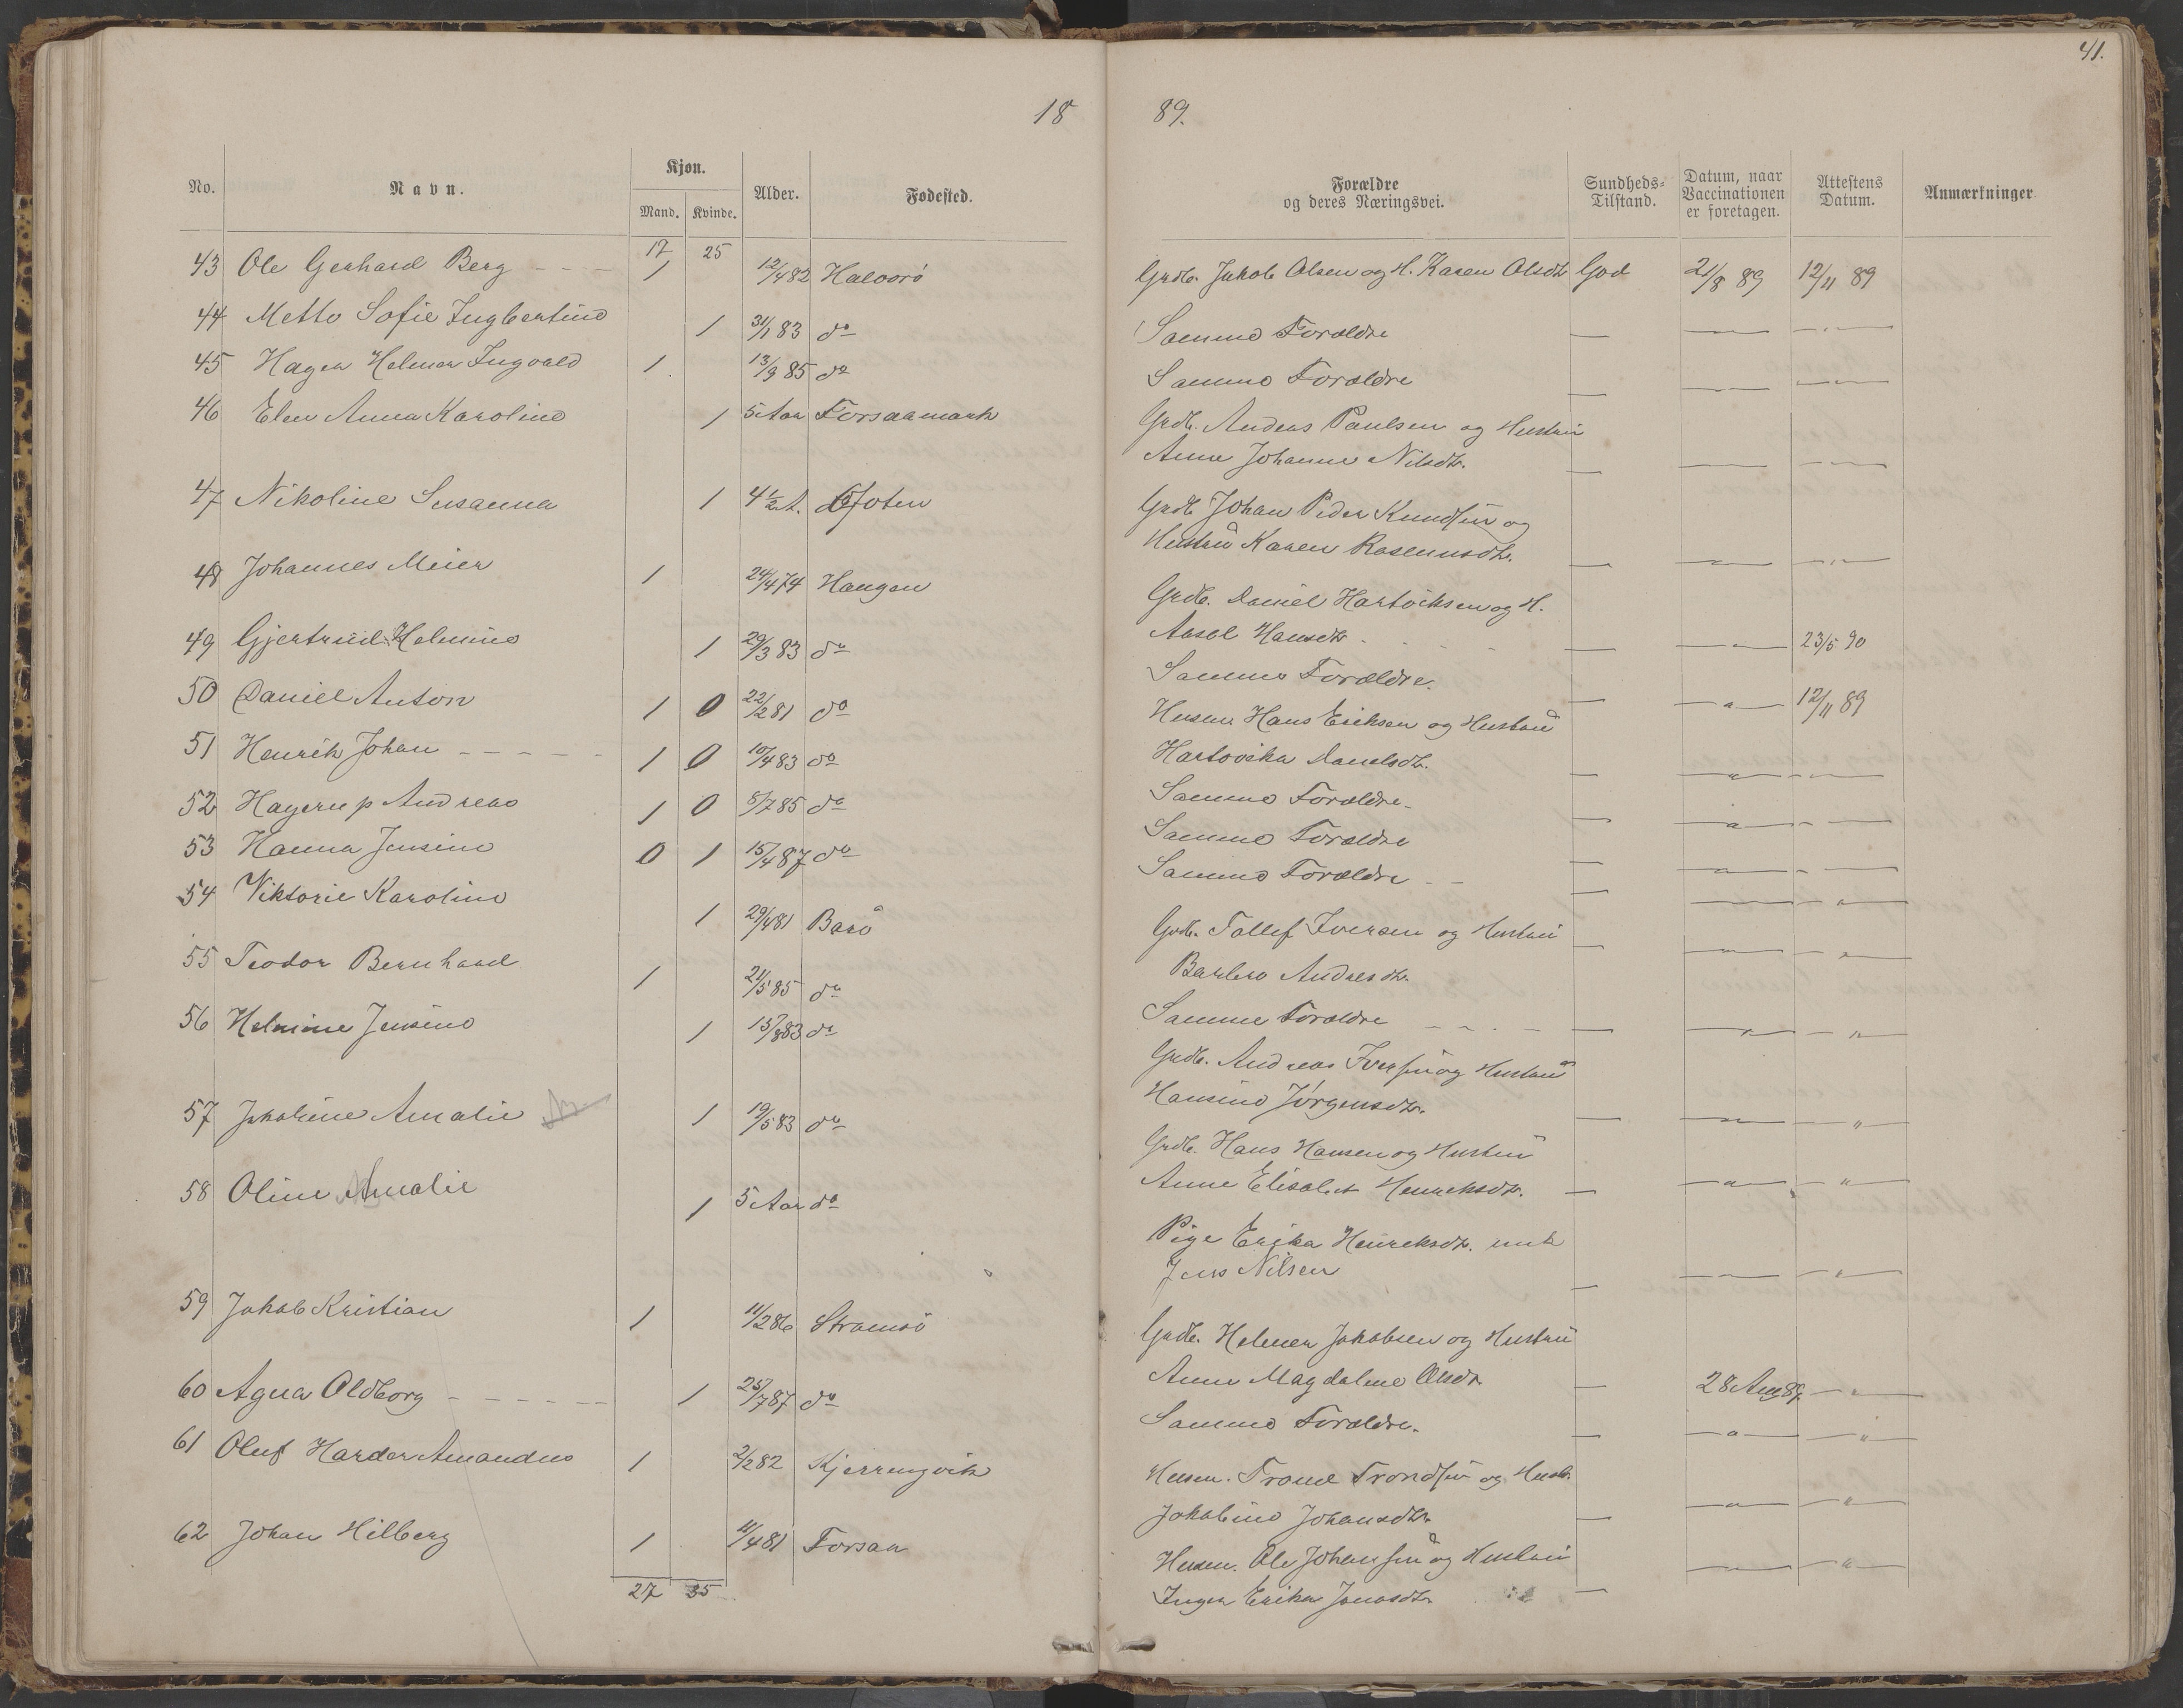 41.
18 89.
No. Navn. Kjøn. Alder. Fødested. Forældre Sundheds= Datum, naar Attestens Anmærkninger
Mand. Kvinde. og deres Næringsvei. Tilstand. Vaccinationen Datum.
er foretagen.
17 25
43 Ole Gerhard Berg 1 12/4 82 Halvorö Grdb. Jakob Olsen og H. Karen Olsdtr God 21/8 89 12/11 89
44 Mette Sofie Ingbertine 1 31/1 83 do Samme Forældre — — —
45 Hagen Helmer Ingvald 1 13/9 85 do Samme Forældre — — —
46 Elen Anna Karoline 1 5 Aar Forsaamark Grdb. Andeas Paulsen og Hustru
Anne Johanne Nilsdtr. — — —
47 Nikoline Susanna 1 4 1/2 A. Ofoten Grdb Johan Peder Knudsen og
Hustru Karen Rasmusdtr. — — —
48 Johannes Meier 1 24/4 74 Haugen Grdb. Daniel Hartviksen og H.
Aasel Hansdtr. — — 23/5 90
49 Gjertrud Helmine 1 29/3 83 do Samme Forældre. — — 12/11 89
50 Daniel Anton 1 0 22/2 81 do Husm Hans Eriksen og Hustru
Hartvika Danelsdtr. — — —
51 Henrik Johan 1 0 10/4 83 do Samme Forældre — — —
52 Hagerup Andreas 1 0 8/7 85 do Samme Forældre — — —
53 Hanna Jensine 0 1 15/4 87 do Samme Forældre — — —
54 Viktorie Karoline 1 29/4 81 Barö Grdb. Tollef Iversen og Hustru
Barbro Andresdtr. — — —
55 Teodor Bernhard 1 21/5 85 do Samme Forældre — — "
56 Helmine Jensine 1 15/8 83 do Grdb. Andreas Iversen og Hustru
Hansine Jörgensdtr. — — "
57 Jakobine Amalie 1 19/5 83 do Grdb. Hans Hansen og Hustru
Anne Elisabet Henriksdtr. — — "
58 Oline Amalie 1 5 Aar do Pige Erika Henriksdtr. med
Jens Nilsen — — "
59 Jakob Kristian 1 11/2 86 Stramsö Grdb. Helmer Jakobsen og Hustru
Anne Magdalene Olsdtr. — 28 Aug 89 "
60 Agna Oldborg 1 25/7 87 do Samme Forældre. — — "
61 Oluf Harder Amandus 1 2/2 82 Kjerringvik Husm. Trond Trondsen og Hustr.
Jakobine Johansdtr. — — "
62 Johan Hilberg 1 11/4 81 Forsaa Husm. Ole Johansen og Hustru
Inger Erika Jonasdtr. — — "
27 35